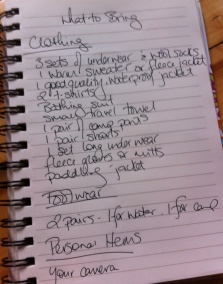 what to bring
Clothing
3 sets of underwear & wool socks
1 warm sweater or fleece jacket
1 good quality waterproof jacket
2 T-shirts
Bathing suit
Small travel towel
1 pair of camp pants
1 pair shorts
1 set long underwear
fleece gloves or mitts
paddling jacket
Footwear
2 pairs - 1 for water, 1 for camp
Personal Items
Your camera